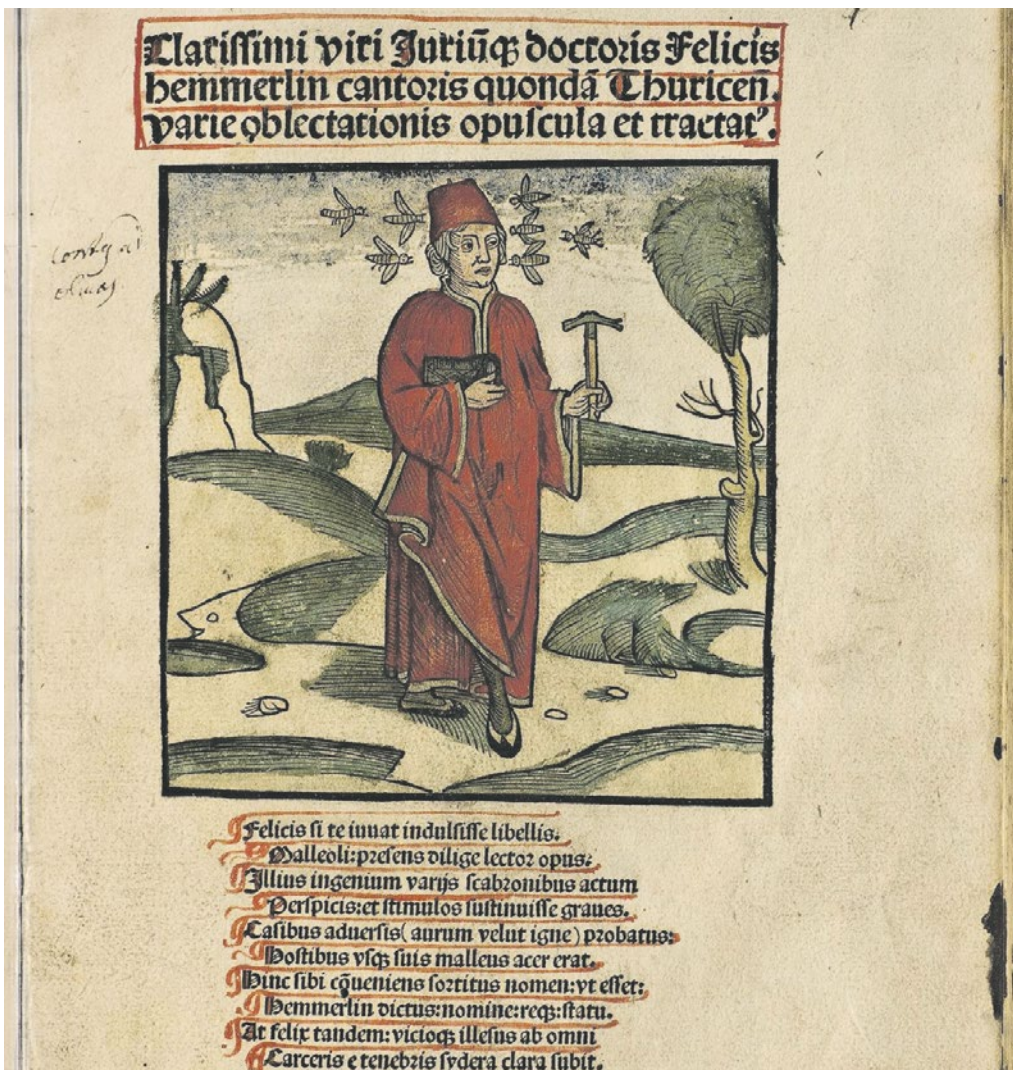 Clarissimi viri Juriūqꝫ doctoris Felicis
hemmerlin cantoris quondā Thuriceñ.
varie oblectationis opuscula et tractatꝰ.
Felicis si te iuuat indulsisse libellis.
Malleoli: presens dilige lector opus.
Illius ingenium varijs scabronibus actum
Perspicis: et stimulos sustinuisse graues.
Casibus aduersis (aurum velut igne) probatus:
Hostibus vsqꝫ suis malleus acer erat.
Hinc sibi cōueniens sortitus nomen: vt esset:
Hemmerlin dictus: nomine: reqꝫ: statu.
At felix tandem: vicioqꝫ illesus ab omni
Carceris e tenebris sydera clara subit.